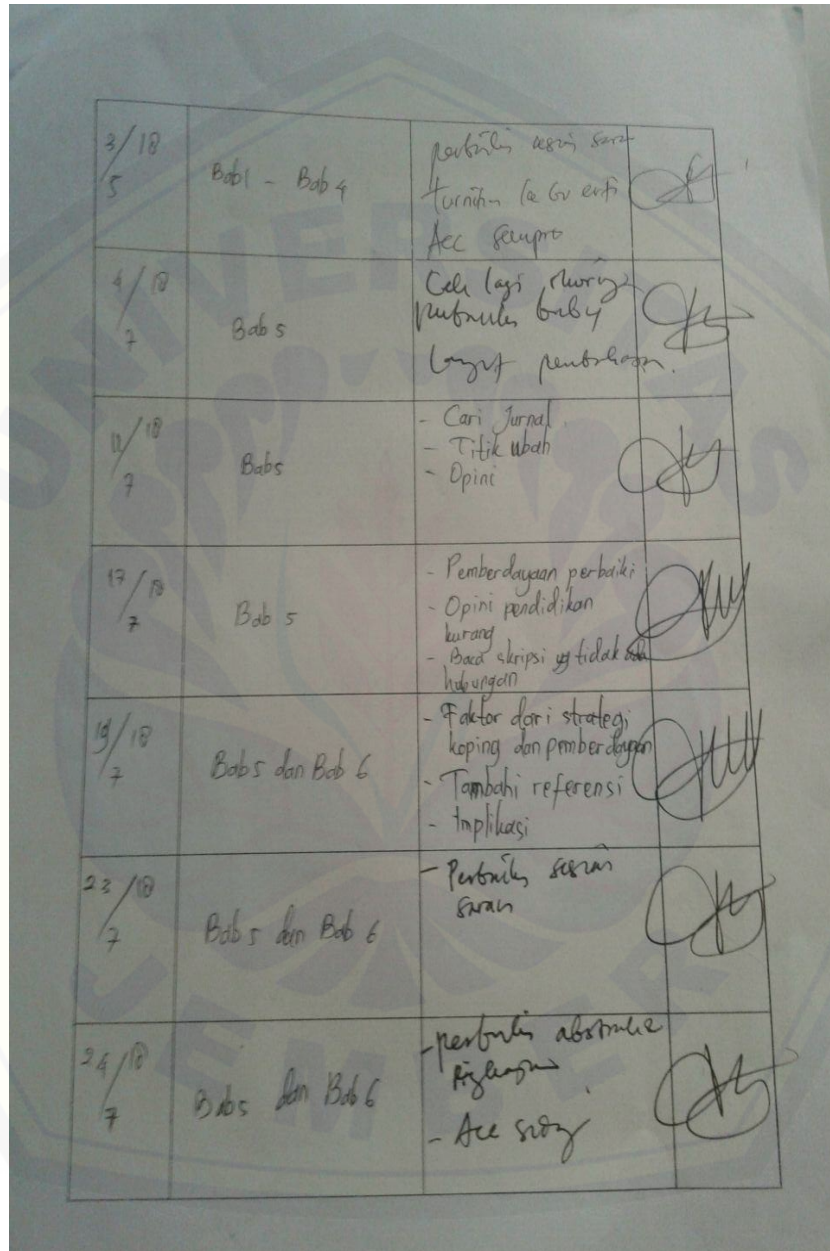 3/18
5
Bab 1 - Bab 4
perbaiki sesuai saran
turnitin
Acc sempro
4/18
7
Bab 5
Cek lagi
lanjut pembahasan.
11/18
7
Bab 5
- Cari Jurnal
- Titik ubah
- Opini
17/18
7
Bab 5
- Pemberdayaan perbaiki
- Opini pendidikan
kurang
- Baca skripsi yg tidak ada
hubungan
19/18
7
Bab 5 dan Bab 6
- Faktor dari strategi
koping dan pemberdayaan
- Tambahi referensi
- Implikasi
23/18
7
Bab 5 dan Bab 6
- Perbaiki sesuai
saran
24/18
7
Bab 5 dan Bab 6
- perbaiki abstrak
ringkasan
- Acc sidang
UNIVERSITAS
JEMBER